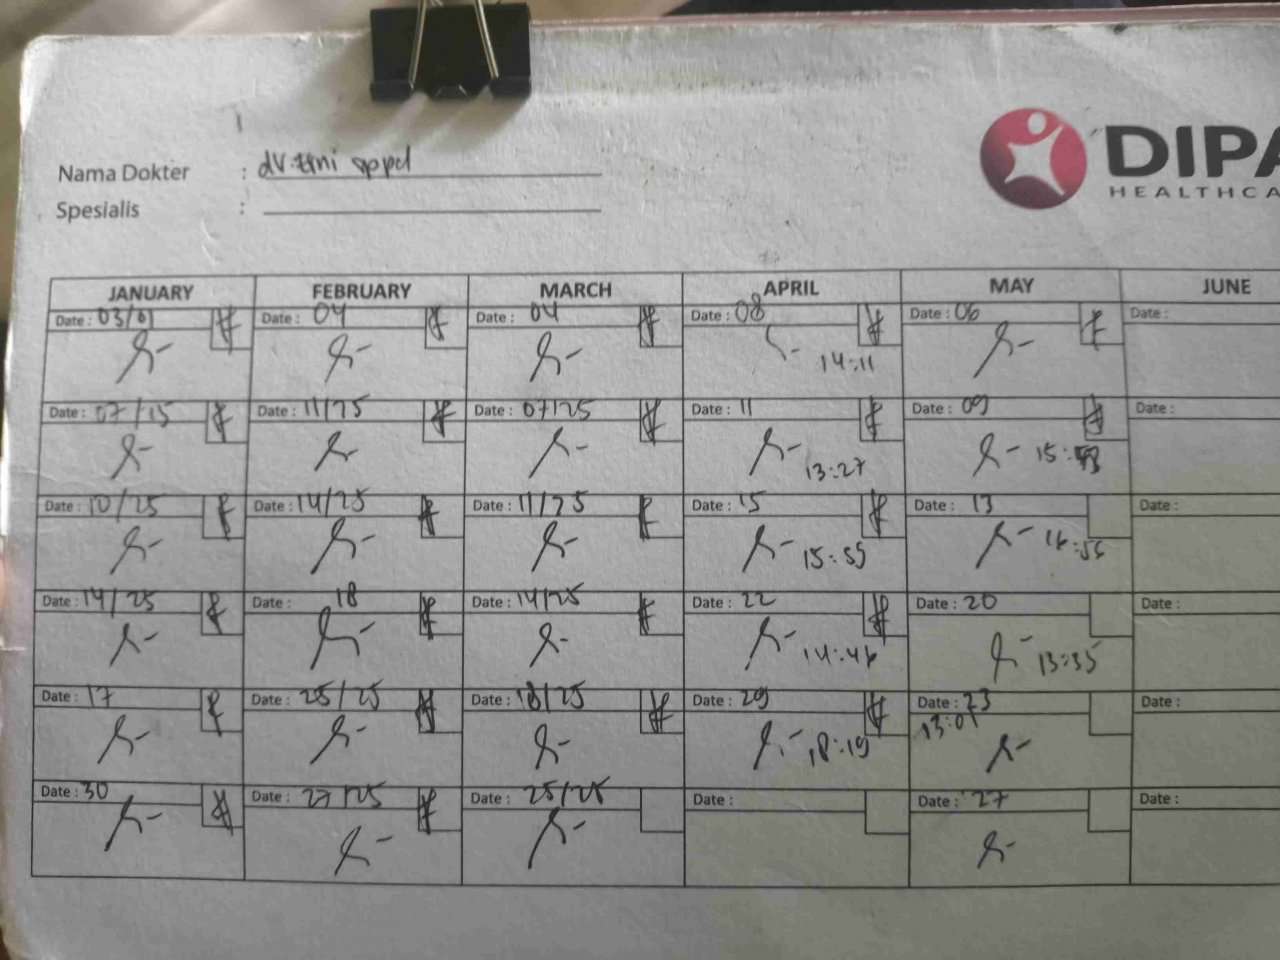 Nama Dokter :
Spesialis :
DIPA
HEALTHCA
JANUARY FEBRUARY MARCH APRIL MAY JUNE
Date : 03/01 Date : 04 Date : 04 Date : 08 Date : 06 Date :
14:11
Date : 07/15 Date : 11/25 Date : 07/25 Date : 11 Date : 09 Date :
13:27 15:
Date : 10/25 Date : 14/25 Date : 11/25 Date : 15 Date : 13 Date :
15:55
Date : 14/25 Date : 18 Date : 14/25 Date : 22 Date : 20 Date :
14:46 13:35
Date : 17 Date : 25/25 Date : 18/25 Date : 29 Date : 23 Date :
18:19 13:01
Date : 30 Date : 27/25 Date : 25/25 Date : Date : 27 Date :